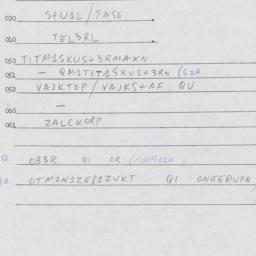 030 STU1L/TASE
040 TEL3RL
050 TITM1SKUS+3RMAXN
051 - QM1TIT1SKUS+3RN (528
052 VAJKTOP/VAJKS+AF QU
060 -
062 ZALCKORP
033R QI OR
OTM2N1ZG/1ZUKT QI ONGERUFN